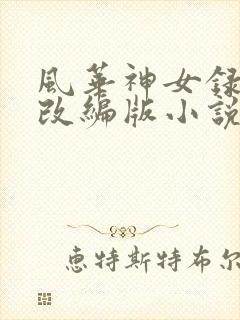 風華神女録
改編版小説
恵特斯特布尔